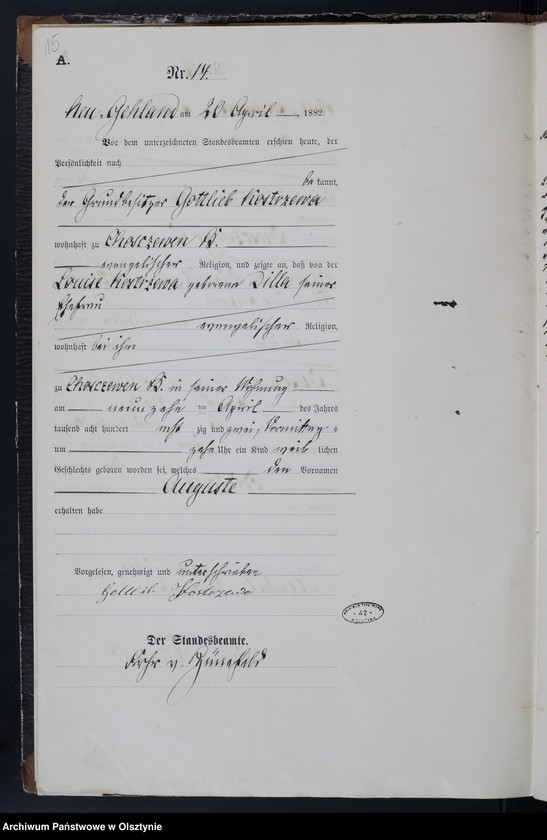 15
A.
Nr. 14.
Neu-Gehland am 20 April 1882.
Vor dem unterzeichneten Standesbeamten erschien heute, der
Persönlichkeit nach
be kannt,
der Grundbesitzer Gottlieb Kostrzewa
wohnhaft zu Choszczewen K.
evangelischer Religion, und zeigte an, daß von der
Louise Kostrzewa geborene Dilla seiner
Ehefrau
evangelischer Religion,
wohnhaft bei ihm
zu Choszczewen K. in seiner Wohnung
am neunzehn ten April des Jahres
tausend acht hundert acht zig und zwei, Vormittag s
um zehn Uhr ein Kind weib lichen
Geschlechts geboren worden sei, welches den Vornamen
Auguste
erhalten habe
Vorgelesen, genehmigt und unterschrieben
Gottlib Kostrzewa
Der Standesbeamte.
Frhr v.
42
Archiwum Państwowe w Olsztynie